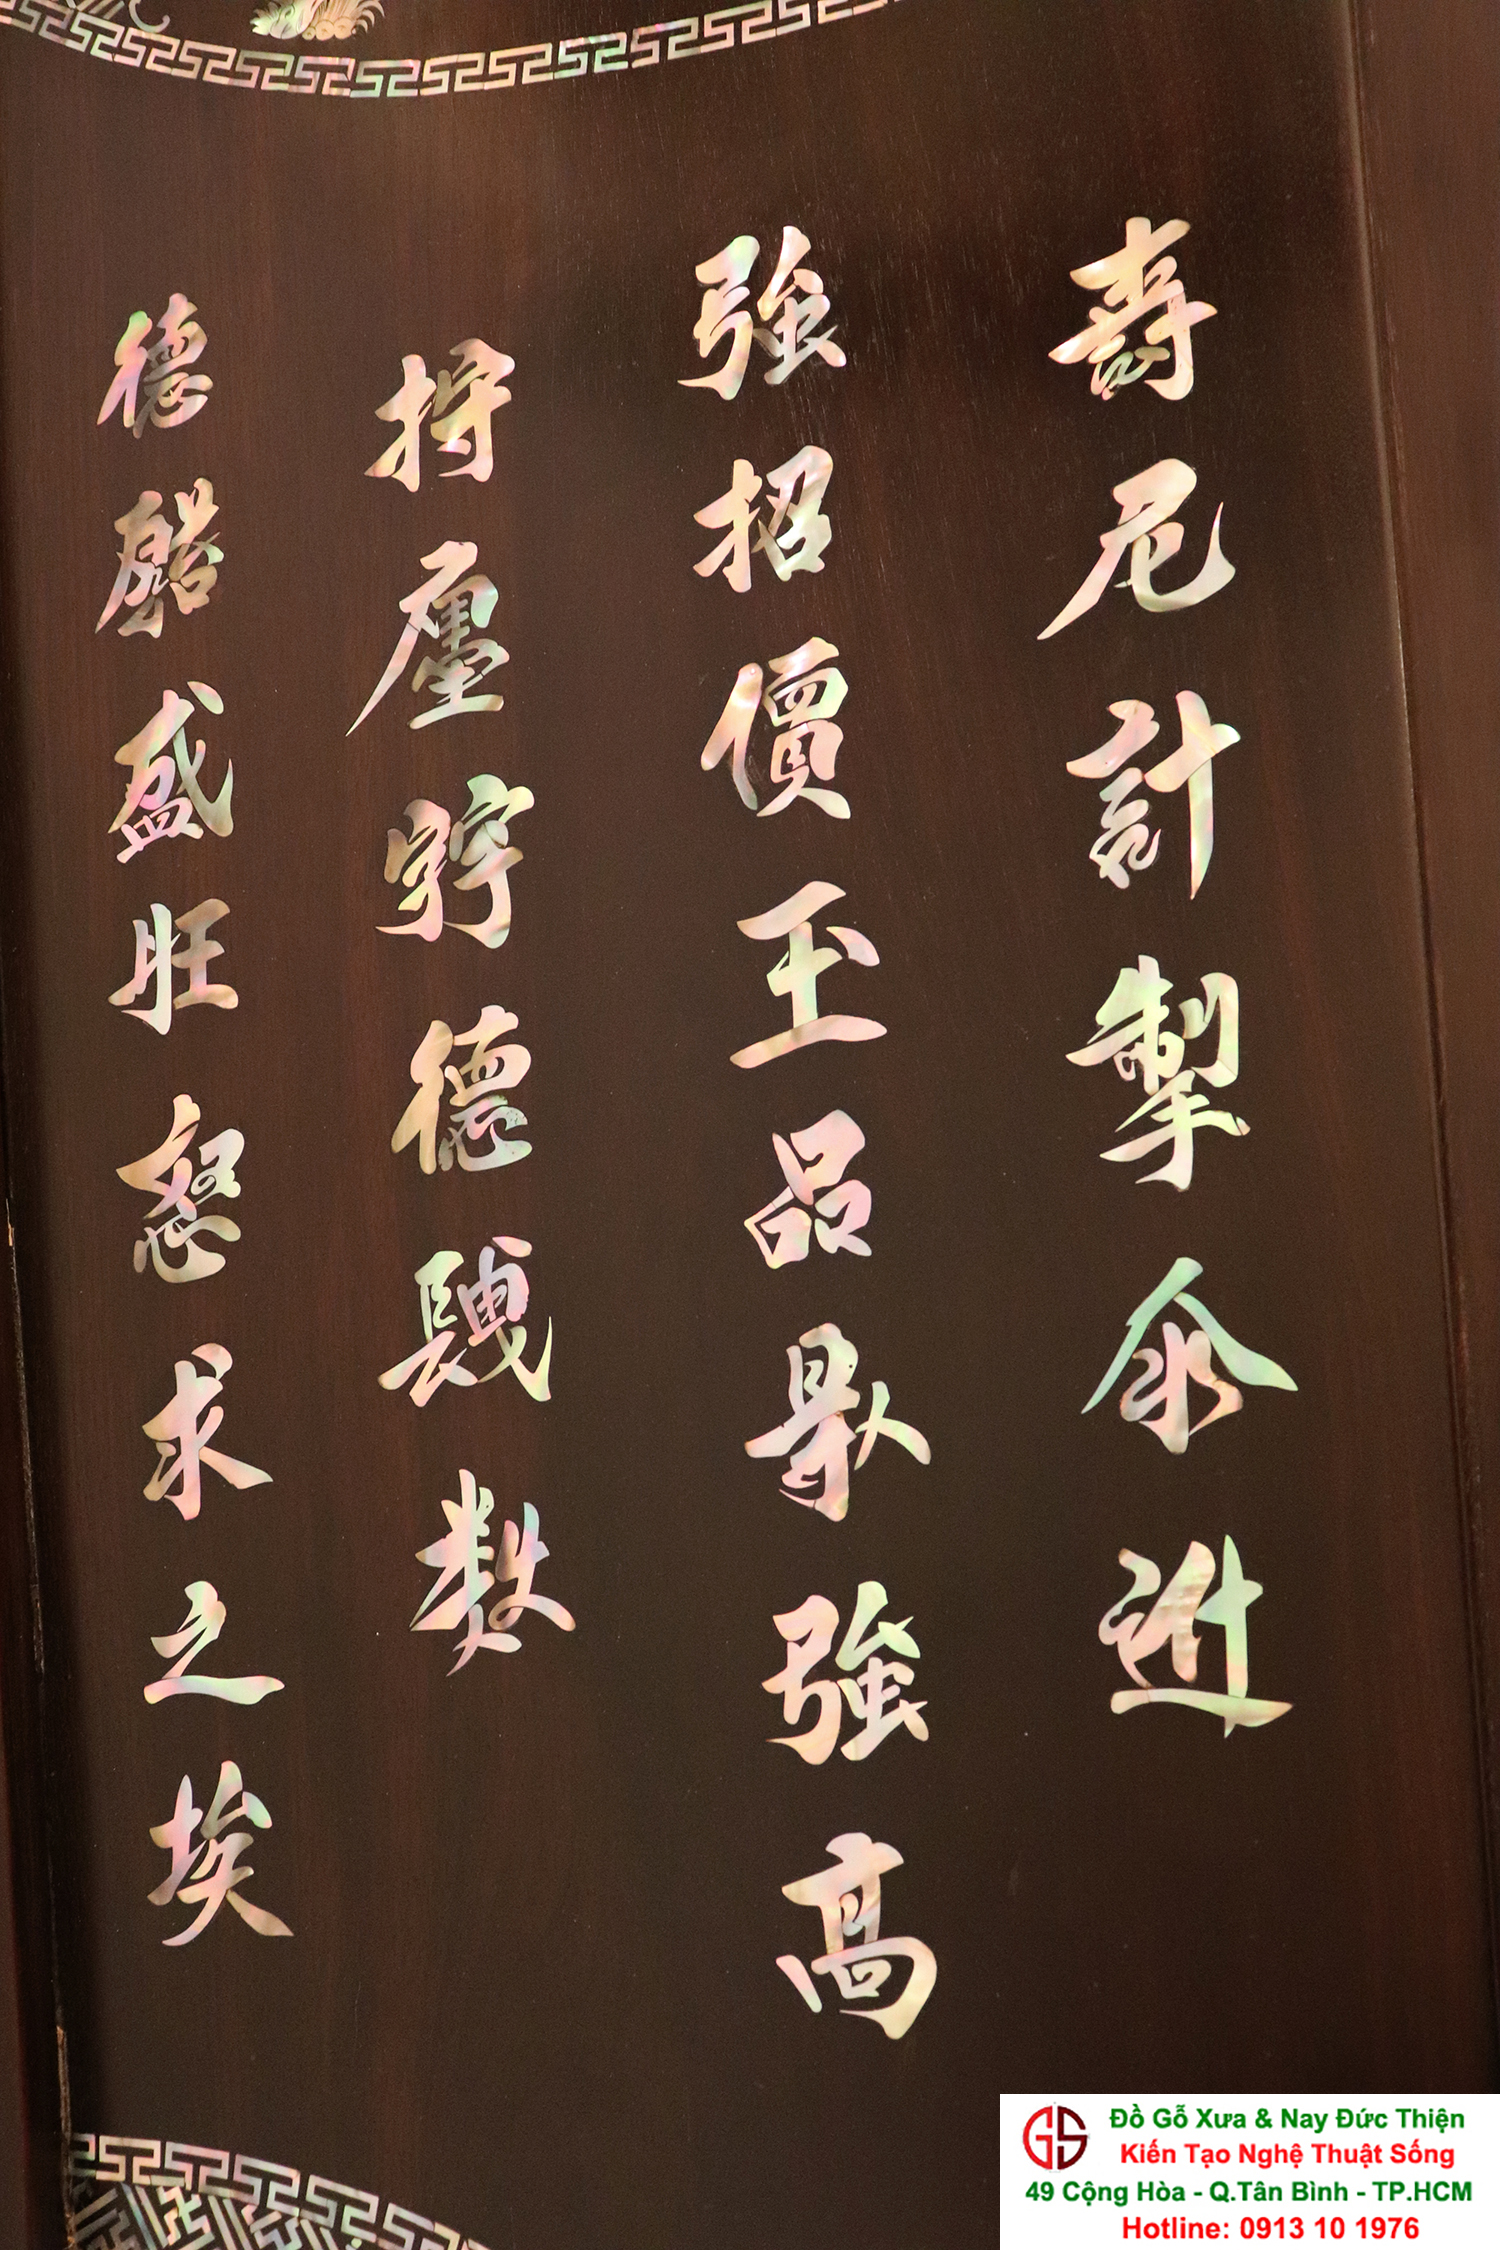 壽尼計掣傘逃
強招價玉品最強高
將廛貯德賤数
德 盛旺怒求之埃
Đồ Gỗ Xưa & Nay Đức Thiện
Kiến Tạo Nghệ Thuật Sống
49 Cộng Hòa - Q.Tân Bình - TP.HCM
Hotline: 0913 10 1976